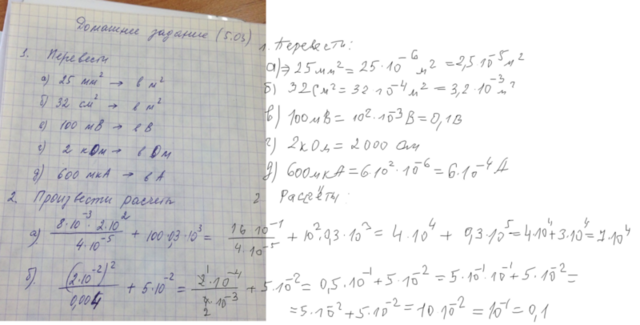 Домашнее задание (5.03)
1. Перевести
а) 25 мм² → в м²
б) 32 см² → в м²
в) 100 мВ → в В
г) 2 кОм → в Ом
д) 600 мкА → в А
2. Произвести расчеты
а) (8·10⁻³ · 2·10²)/(4·10⁻⁵) + 100·0,3·10³ = (16·10⁻¹)/(4·10⁻⁵) + 10²·0,3·10³ = 4·10⁴ + 0,3·10⁵ = 4·10⁴ + 3·10⁴ = 7·10⁴
б) (2·10⁻²)²/0,004 + 5·10⁻² = (2·10⁻⁴)/(4·10⁻³) + 5·10⁻² = 0,5·10⁻¹ + 5·10⁻² = 5·10⁻¹·10⁻¹ + 5·10⁻² =
= 5·10⁻² + 5·10⁻² = 10·10⁻² = 10⁻¹ = 0,1
1. Перевести:
а) → 25 мм² = 25·10⁻⁶ м² = 2,5·10⁻⁵ м²
б) 32 см² = 32·10⁻⁴ м² = 3,2·10⁻³ м²
в) 100 мВ = 10²·10⁻³ В = 0,1 В
г) 2 кОм = 2000 Ом
д) 600 мкА = 6·10²·10⁻⁶ = 6·10⁻⁴ А
2 Рассчёты: